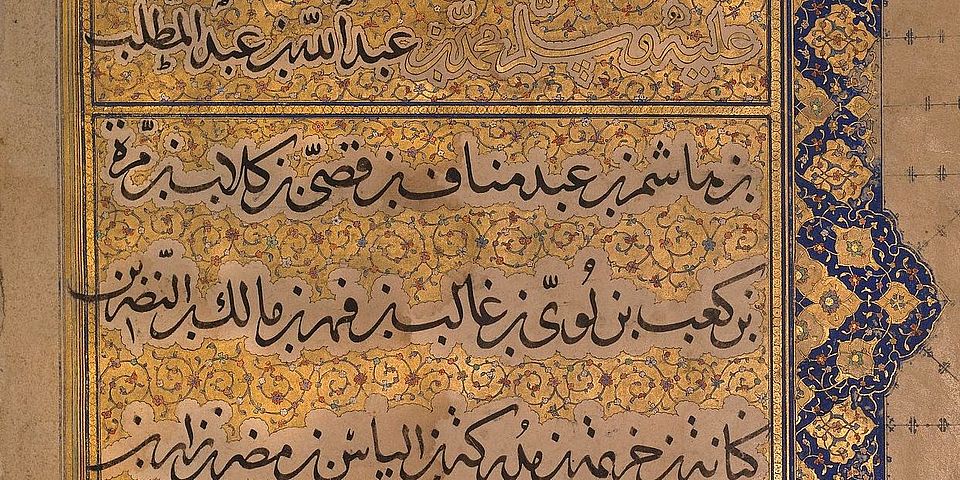 عليه وسلم محمد بن عبد الله بن عبد المطلب
بن هاشم بن عبد مناف بن قصىّ بن كلاب بن مرّة
بن كعب بن لُوىّ بن غالب بن فهر بن مالك بن النّضر بن
كنانة بن خزيمة بن مدركة بن الياس بن مضر بن نزار بن